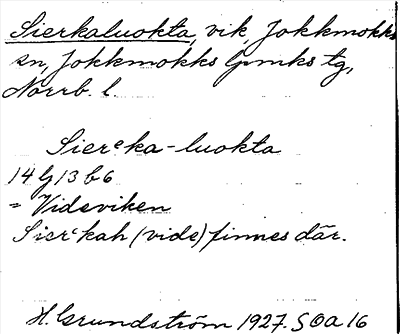 Sierkaluokta, vik, Jokkmokks
sn, Jokkmokks lpmks tg,
Norrb. l.
Sierᶜka-luokta
14 G 13 b 6
= Videviken
Sierᶜkah (vide) finnes där.
H. Grundström 1927. SOA 16